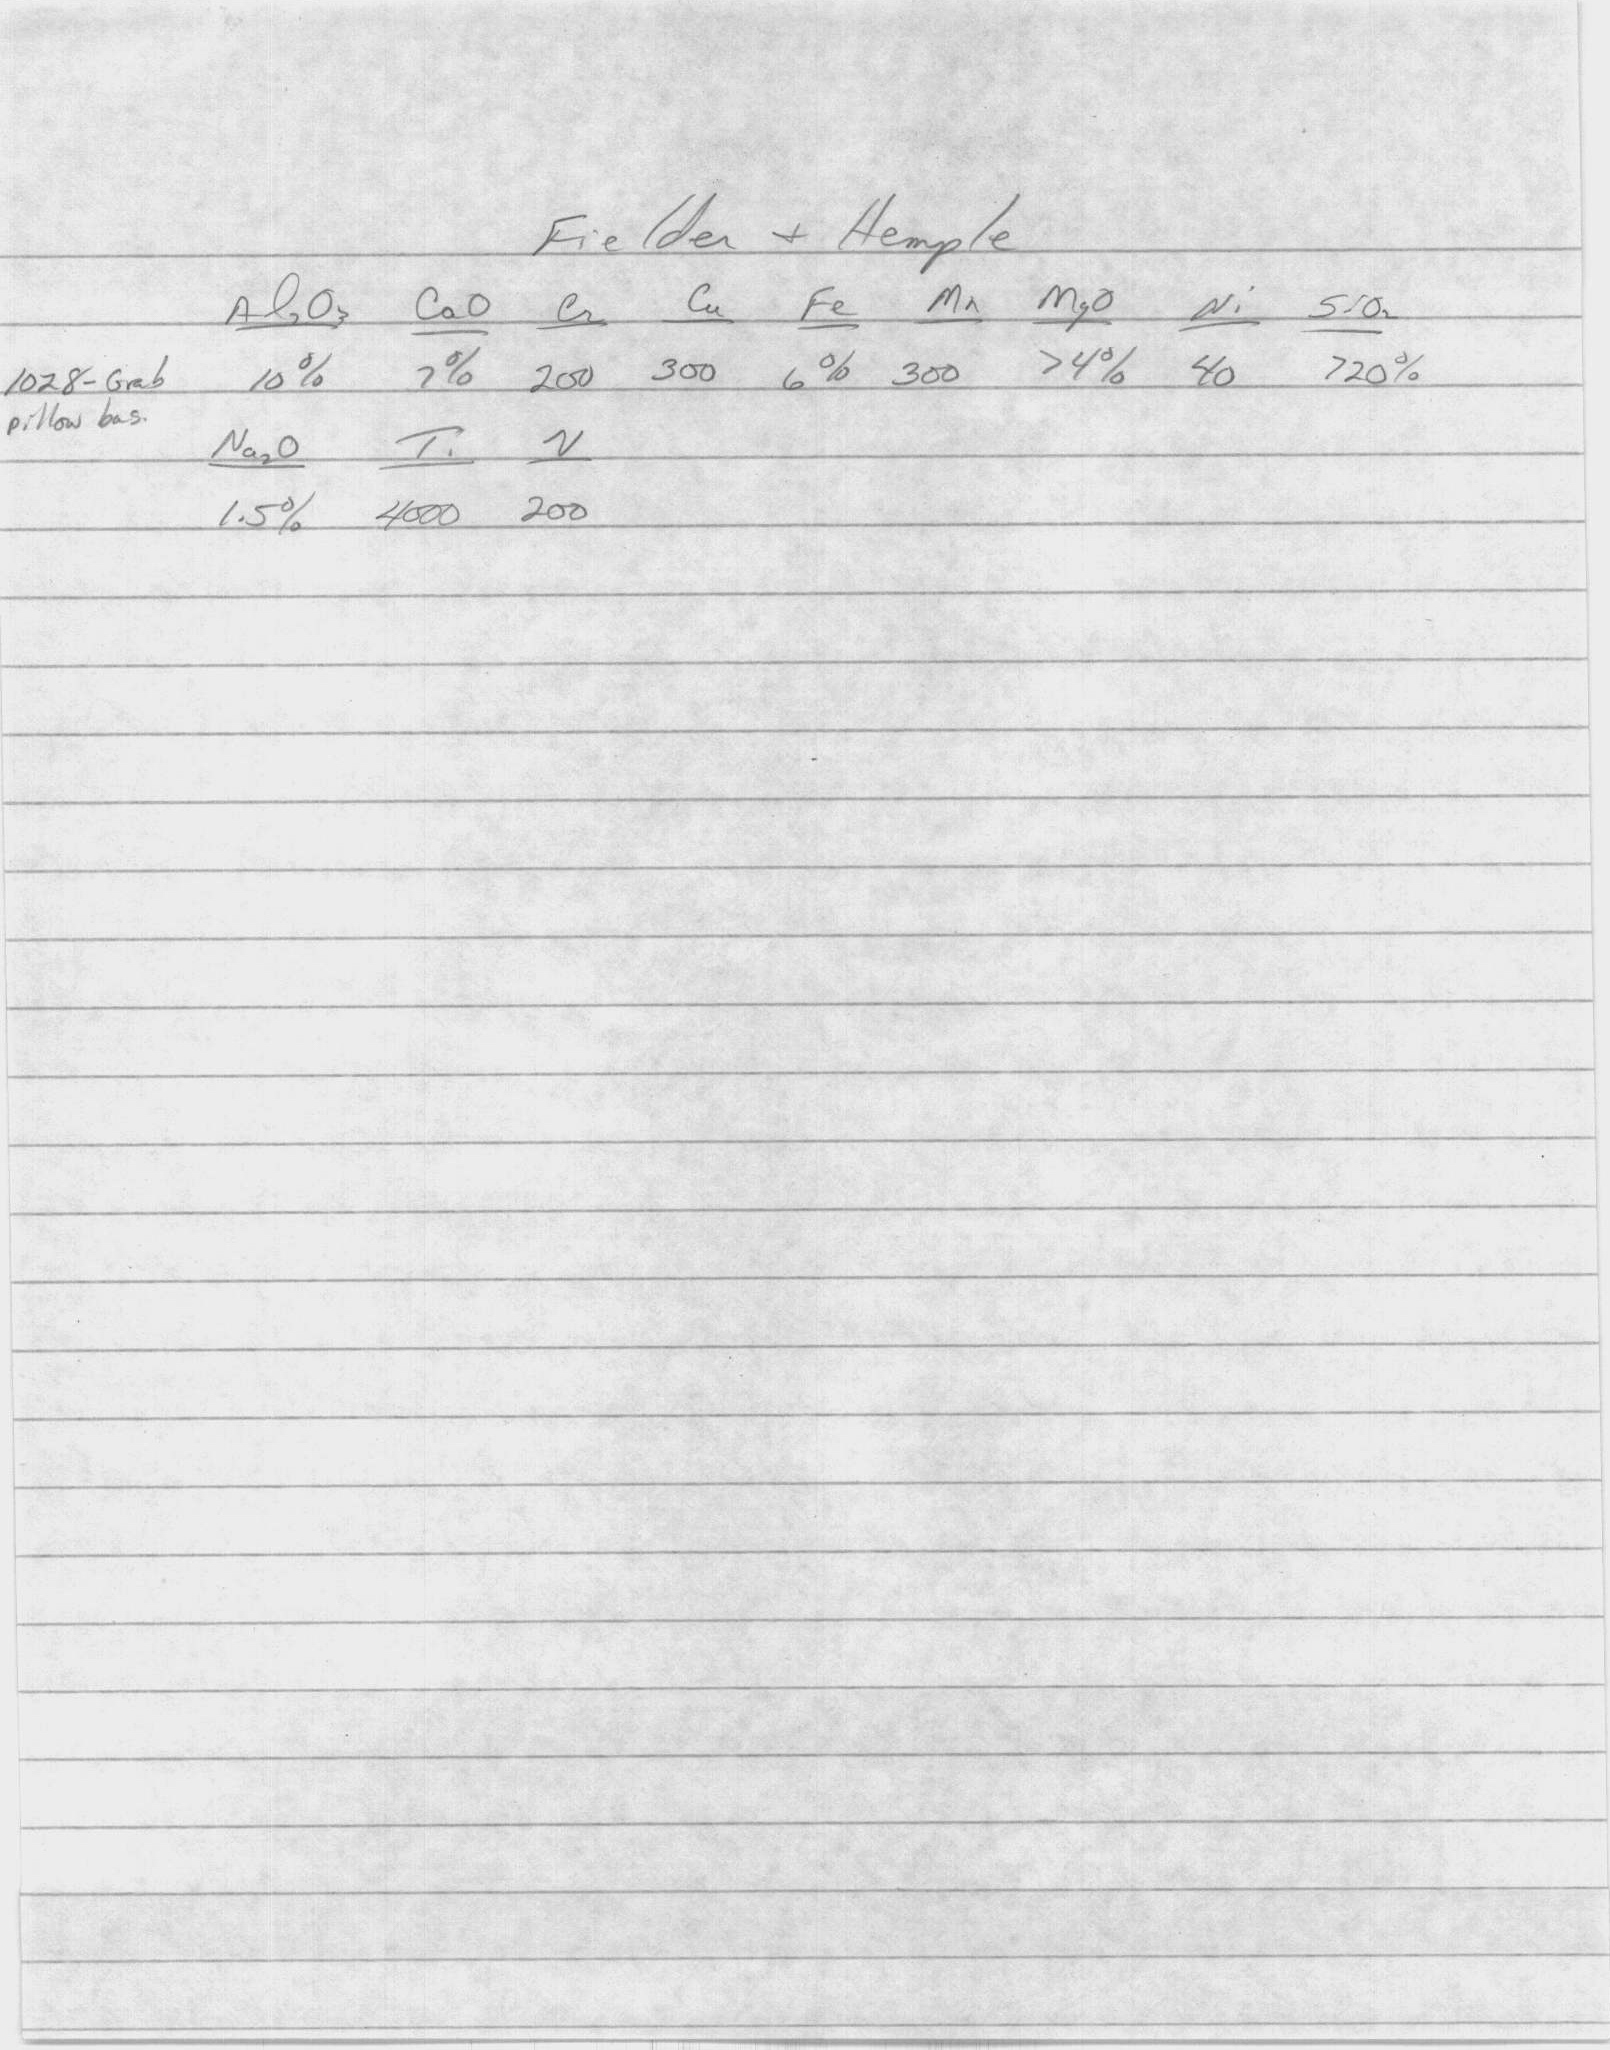 Fielder + Hemple
Al₂O₃ CaO Cr Cu Fe Mn MgO Ni SiO₂
1028-Grab 10% 7% 200 300 6% 300 >4% 40 >20%
pillow bas.
Na₂O Ti V
1.5% 4000 200